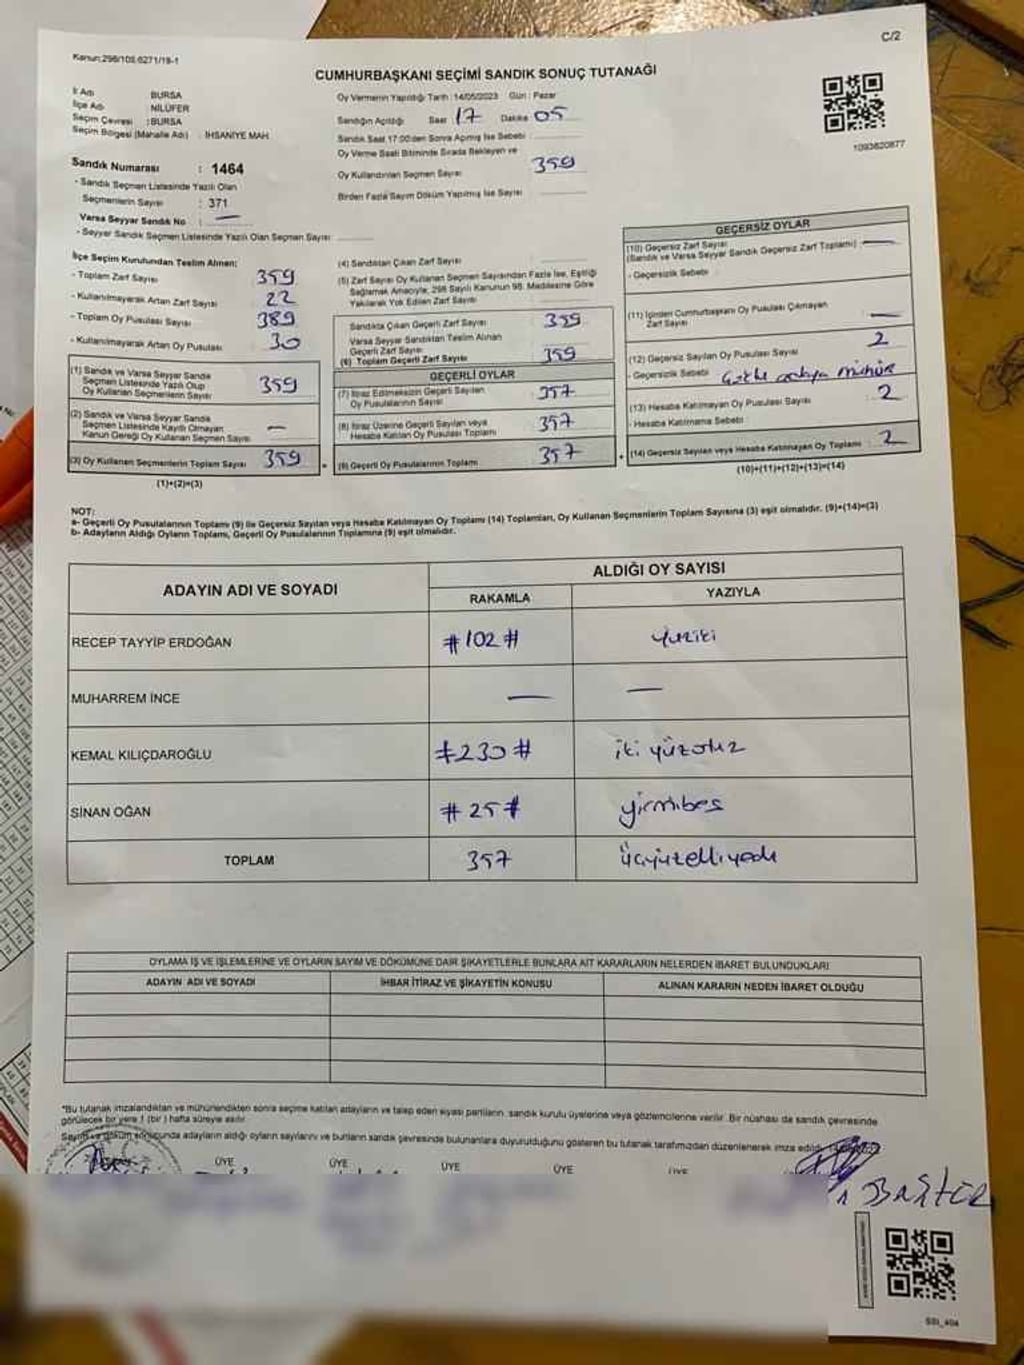 C/2
Kanun:298/105,6271/19-1
CUMHURBAŞKANI SEÇİMİ SANDIK SONUÇ TUTANAĞI
İl Adı BURSA
İlçe Adı NİLÜFER
Seçim Çevresi : BURSA
Seçim Bölgesi (Mahalle Adı) : İHSANİYE MAH.
Sandık Numarası : 1464
- Sandık Seçmen Listesinde Yazılı Olan
Seçmenlerin Sayısı : 371
Varsa Seyyar Sandık No : —
- Seyyar Sandık Seçmen Listesinde Yazılı Olan Seçmen Sayısı
Oy Vermenin Yapıldığı Tarih : 14/05/2023 Gün : Pazar
Sandığın Açıldığı Saat 17 Dakika 05
Sandık Saat 17:00'den Sonra Açılmış İse Sebebi :
Oy Verme Saati Bitiminde Sırada Bekleyen ve
Oy Kullandırılan Seçmen Sayısı 359
Birden Fazla Sayım Döküm Yapılmış İse Sayısı
1093820877
İlçe Seçim Kurulundan Teslim Alınan;
- Toplam Zarf Sayısı 359
- Kullanılmayarak Artan Zarf Sayısı 22
- Toplam Oy Pusulası Sayısı 389
- Kullanılmayarak Artan Oy Pusulası 30
(1) Sandık ve Varsa Seyyar Sandık
Seçmen Listesinde Yazılı Olup
Oy Kullanan Seçmenlerin Sayısı 359
(2) Sandık ve Varsa Seyyar Sandık
Seçmen Listesinde Kaydı Olmayan
Kanun Gereği Oy Kullanan Seçmen Sayısı —
(3) Oy Kullanan Seçmenlerin Toplam Sayısı 359
(1)+(2)=(3)
(4) Sandıktan Çıkan Zarf Sayısı
(5) Zarf Sayısı Oy Kullanan Seçmen Sayısından Fazla İse, Eşitliği
Sağlamak Amacıyla, 298 Sayılı Kanunun 98. Maddesine Göre
Yakılarak Yok Edilen Zarf Sayısı
Sandıkta Çıkan Geçerli Zarf Sayısı 359
Varsa Seyyar Sandıktan Teslim Alınan
Geçerli Zarf Sayısı
(6) Toplam Geçerli Zarf Sayısı 359
GEÇERLİ OYLAR
(7) İtiraz Edilmeksizin Geçerli Sayılan
Oy Pusulalarının Sayısı 357
(8) İtiraz Üzerine Geçerli Sayılan veya
Hesaba Katılan Oy Pusulası Toplamı 357
(9) Geçerli Oy Pusulalarının Toplamı 357
GEÇERSİZ OYLAR
(10) Geçersiz Zarf Sayısı
(Sandık ve Varsa Seyyar Sandık Geçersiz Zarf Toplamı) —
- Geçersizlik Sebebi
(11) İçinden Cumhurbaşkanı Oy Pusulası Çıkmayan
Zarf Sayısı —
(12) Geçersiz Sayılan Oy Pusulası Sayısı 2
- Geçersizlik Sebebi mühür
(13) Hesaba Katılmayan Oy Pusulası Sayısı 2
- Hesaba Katılmama Sebebi:
(14) Geçersiz Sayılan veya Hesaba Katılmayan Oy Toplamı 2
(10)+(11)+(12)+(13)=(14)
NOT:
a- Geçerli Oy Pusulalarının Toplamı (9) ile Geçersiz Sayılan veya Hesaba Katılmayan Oy Toplamı (14) Toplamları, Oy Kullanan Seçmenlerin Toplam Sayısına (3) eşit olmalıdır. (9)+(14)=(3)
b- Adayların Aldığı Oyların Toplamı, Geçerli Oy Pusulalarının Toplamına (9) eşit olmalıdır.
ADAYIN ADI VE SOYADI ALDIĞI OY SAYISI
RAKAMLA YAZIYLA
RECEP TAYYİP ERDOĞAN #102# yüziki
MUHARREM İNCE — —
KEMAL KILIÇDAROĞLU #230# iki yüzotuz
SİNAN OĞAN #25# yirmibeş
TOPLAM 357 üçyüzelliyedi
OYLAMA İŞ VE İŞLEMLERİNE VE OYLARIN SAYIM VE DÖKÜMÜNE DAİR ŞİKAYETLERLE BUNLARA AİT KARARLARIN NELERDEN İBARET BULUNDUKLARI
ADAYIN ADI VE SOYADI İHBAR İTİRAZ VE ŞİKAYETİN KONUSU ALINAN KARARIN NEDEN İBARET OLDUĞU
*Bu tutanak imzalandıktan ve mühürlendikten sonra seçime katılan adayların ve talep eden siyasi partilerin, sandık kurulu üyelerine veya gözlemcilerine verilir. Bir nüshası da sandık çevresinde
görülecek bir yere 1 (bir) hafta süreyle asılır.
Sayım ve döküm sonucunda adayların aldığı oyların sayılarını ve bunların sandık çevresinde bulunanlara duyurulduğunu gösteren bu tutanak tarafımızdan düzenlenerek imza edildi.
ÜYE ÜYE ÜYE ÜYE ÜYE